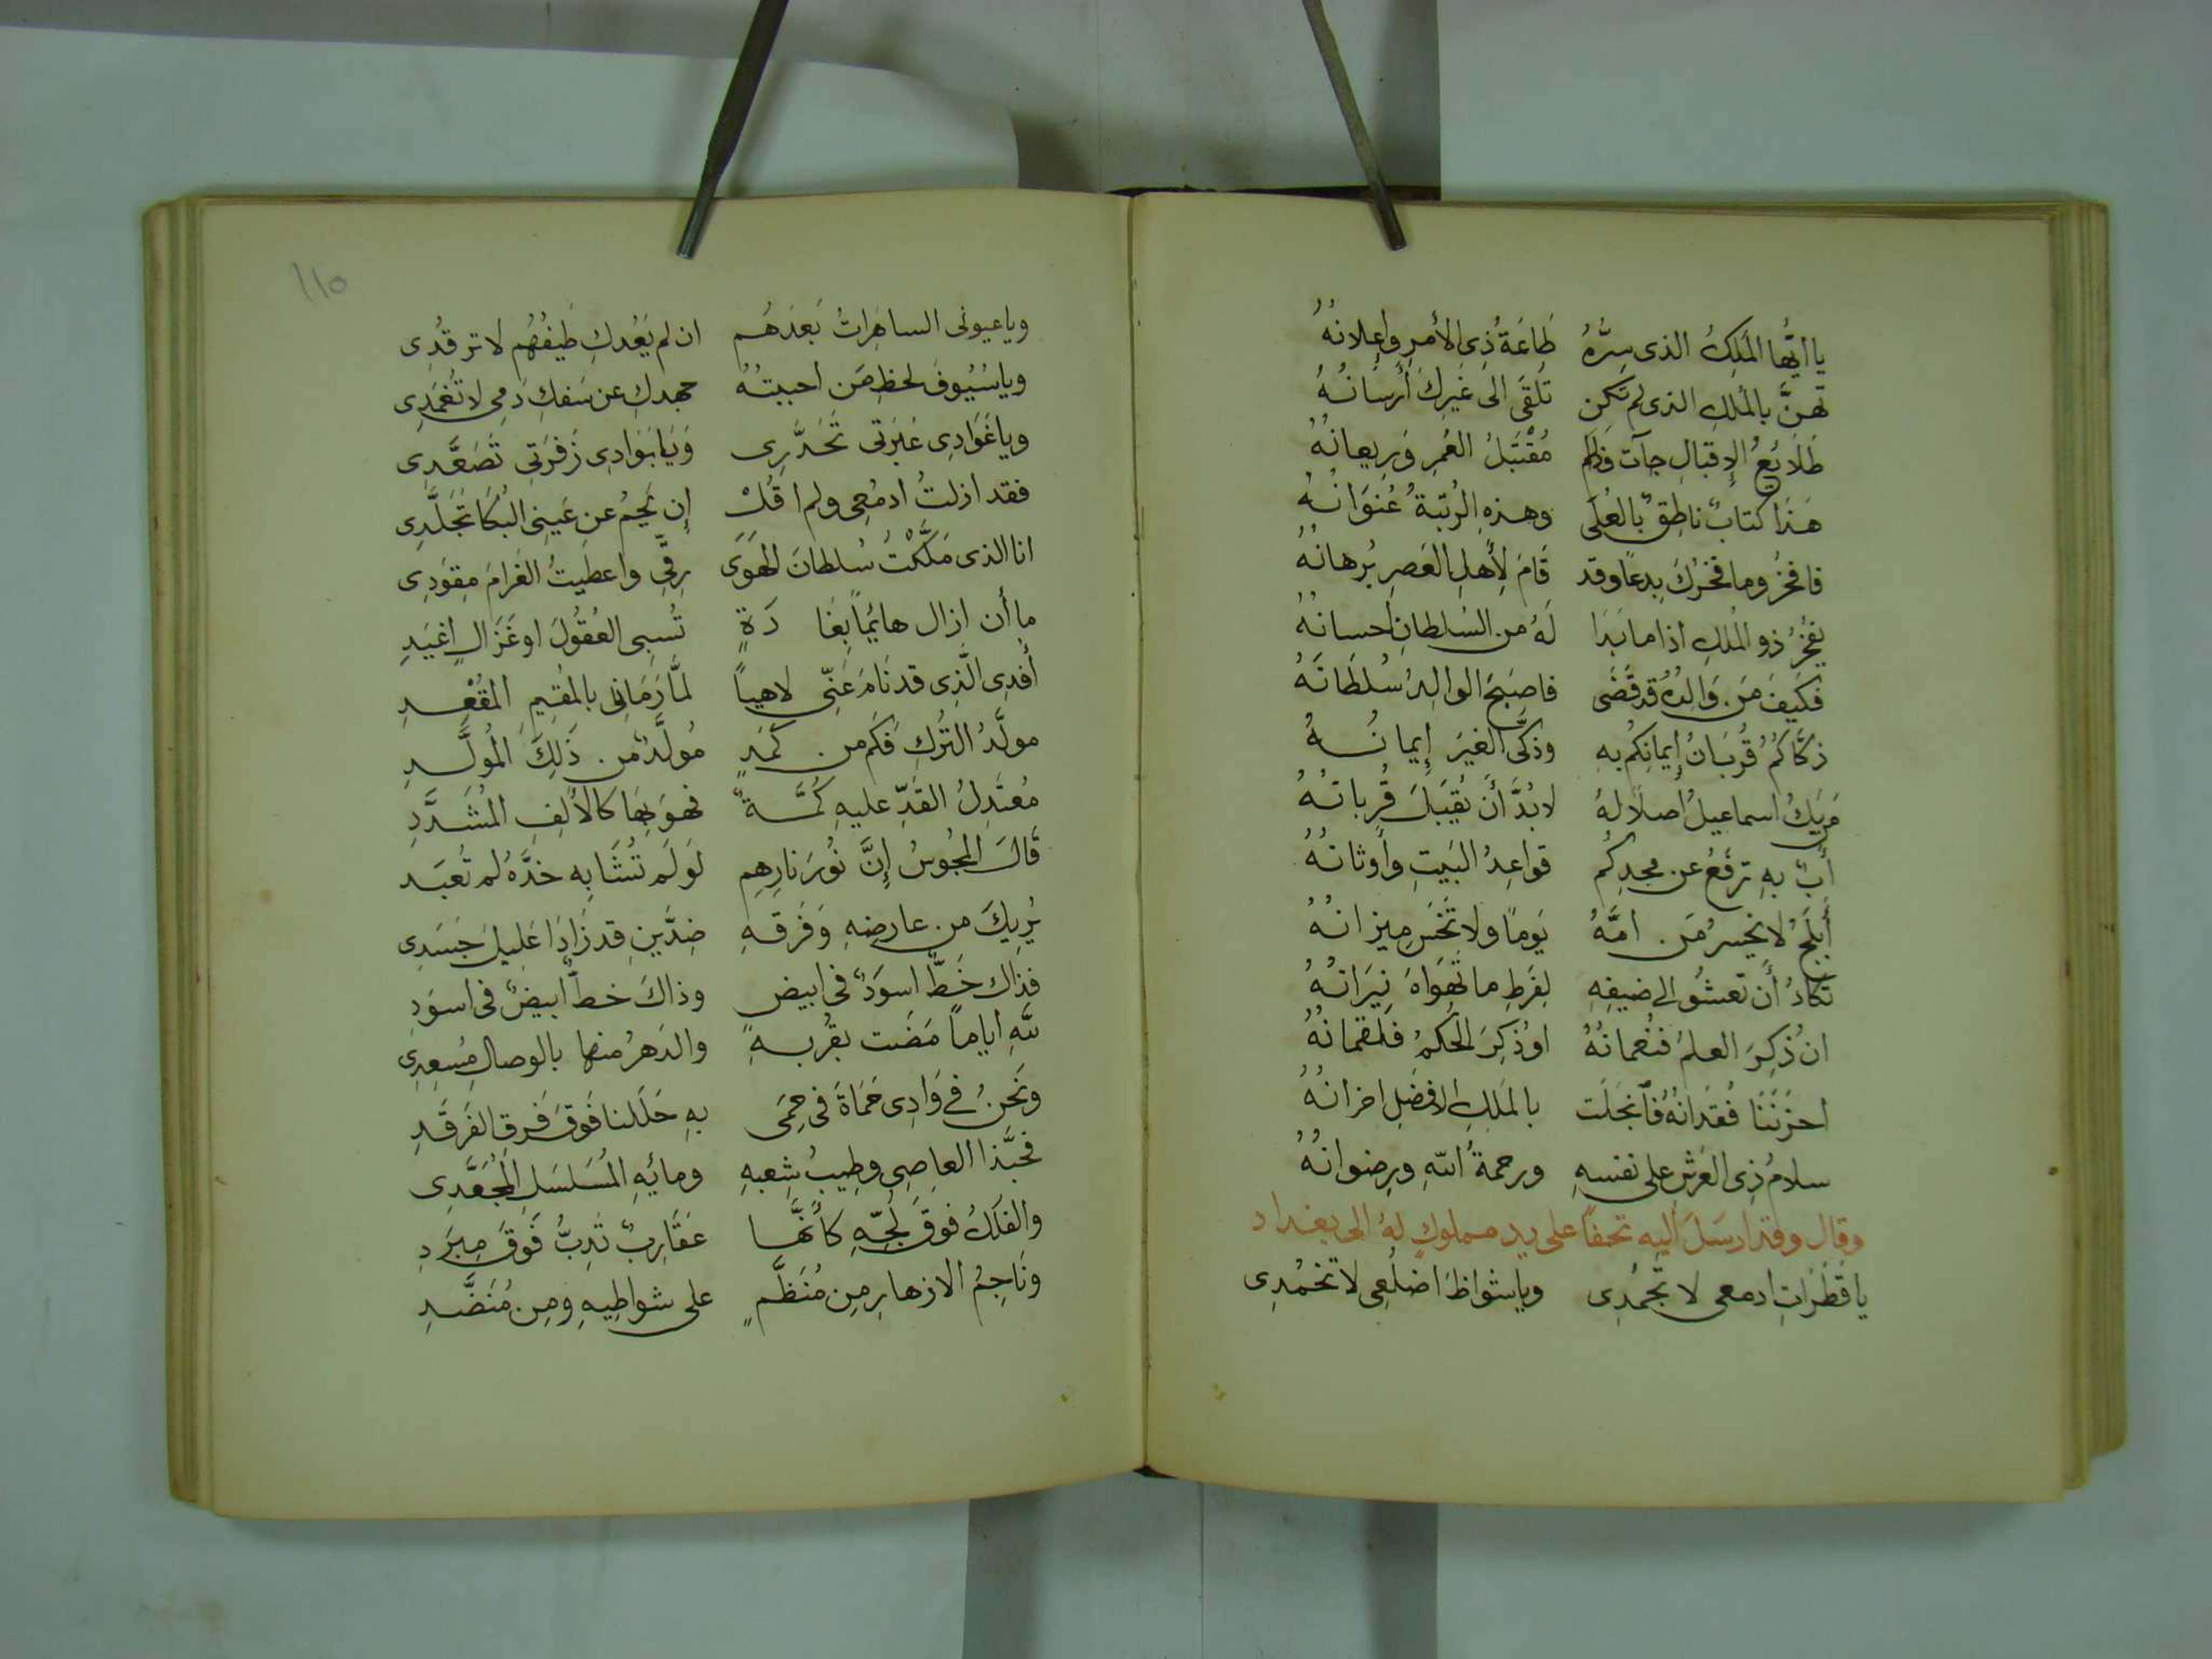 يا ايُّها المَلِكُ الذى سِرُّهُ طَاعَةُ ذِى الأمرِ واِعلانهُ
تهنَّ بالمُلكِ الذى لم تكن تُلقَى الى غَيرِكَ أَرسَانُهُ
طَلَايُعُ الإِقبالِ جآت فكم مُقْتَبَلُ العُمرِ وَرِيعانُهُ
هَذَا كتابٌ ناطِقٌ بالعُلَى وهذهِ الرُتبَةُ عُنوَانُهُ
فافخرُ وما فخرُكَ بِدعًا وقد قَامَ لِأَهلِ العَصرِ بُرهانُهُ
يفخرُ ذو المُلكِ اذا ما بَدَا لَهُ من السُلطانِ احسانُهُ
فكَيفَ مَن وَالدُهُ قد قَضَى فاصبَحَ الوالِدُ سُلطَانَهُ
ذكَّاكمُ قُربَانُ إِيمانِكُم بهِ وذكَّى الغيرَ إِيمانُهُ
مَن يَكُ اسماعيلُ اصلًا لهُ لابُدَّ أَن يُقبَلَ قُربانُهُ
أَبٌ بهِ ترفَعُ عن مجدِكُم قواعِدُ البَيتِ وأَوثانُهُ
أَبلَجُ لا يخسرُ مَن امَّهُ يَومًا ولا تخسَر ميزانُهُ
تكادُ أَن تعشُو الى ضيفِهِ لِفَرطِ ما تهوَاهَ نِيرَانُهُ
ان ذُكِرَ العلمُ فنُعمانُهُ اوذُكِرَ الحُكمُ فلقمانُهُ
احزَنَنَا فُقدَانُهُ فآنجَلَت بالمَلِكِ الافضلِ احزانُهُ
سلامُ ذِى العَرشِ على نفسهِ ورحمةُ اللهِ ورِضوانُهُ
وقال وقد ارسَلَ اليه تحفًا على يد مملوكٍ لهُ الى بغداد
يا قَطَرَاتِ ادمعى لا تجمُدِى ويا شواظَ اضلُعِى لا تخمُدِى
ويا عيونى الساهِرَاتُ بَعدَهُم ان لم يَعُدكِ طَيفُهُم لا ترقُدِى
ويا سُيُوفَ لحظِ مَن احببتُهُ جهدكِ عن سَفكِ دَمِى لا تُغمَدِى
ويا غَوَادِى عَبرَتى تحَدَّرِى وَيَا بَوَادِى زَفرَتِى تَصَعَّدِى
فقد ازلتُ ادمُعِى ولم اقُلْ إن يَحِمُ عن عَينِى البُكَا تجَلَّدِى
انا الذى مَلَّكْتُ سُلطانَ الهَوَى رِقِّى واعطَيتُ الغَرامَ مِقوَدِى
ما أن ازال هائِمًا بِغَا دَةٍ تُسبِى العُقُولَ او غَزَالٍ اغيَدِ
أَفدِى الَّذِى قد نَامَ عَنِّى لاهِياً لمَّا رَمَانِى بالمُقِيمِ المُقعِدِ
مولَّدُ التُركِ فكَم من كَمَدٍ مُولَّدٌ من ذَلِكَ المُولَّدِ
مُعتَدِلُ القَدِّ عليهِ كُمَّةٌ فهوَ بِهَا كالأَلِفِ المُشَدَّدِ
قَالَ المجُوسُ إِنَّ نُورَ نارِهِم لَو لَم تُشَابِه خدَّهُ لم تُعبَد
يُريكَ من عارضِهِ وَفَرقهِ ضِدَّينِ قد زَادَا عَلِيلَ جَسَدِى
فذاك خَطٌّ اسوَدٌ فى ابيض وذاكَ خطٌّ ابيضٌ فى اسوَدِ
للهِ اياماً مَضَت بقُربهِ والدَهرُ منها بالوصالِ مُسعِدِى
ونحنُ فى وَادِى حَمَاةَ فى حِمَى بهِ حَلَلنا فَوقَ فَرقِ الفَرقَدِ
فحبَّذا العاصِى وطِيبُ شِعبهِ ومائِهِ المُسَلسَلِ المُجَعَّدِى
والفلكُ فوقَ لُجّهِ كأَنَّهَا عَقَارِبٌ تَدِبُّ فَوقَ مِبرَدِ
ونَاجِمُ الازهارِ مِن مُنَظَّمٍ على شواطِيهِ ومِن مُنَضَّدِ
١١٥